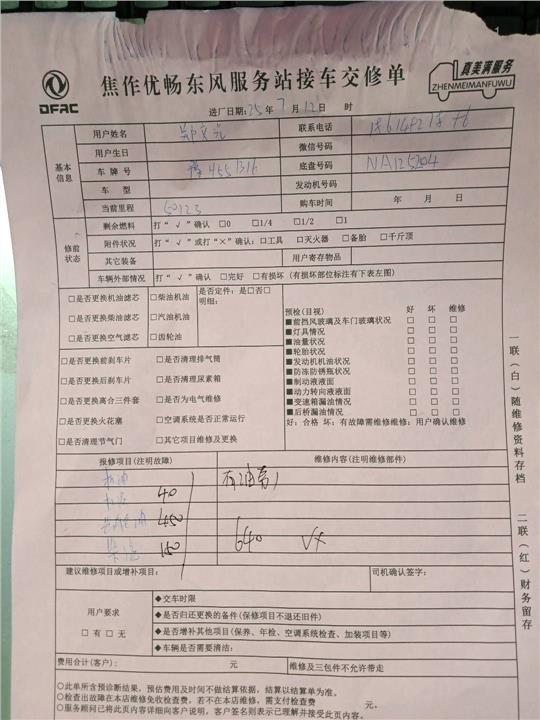 DFAC
焦作优畅东风服务站接车交修单
真美满服务
ZHENMEIMANFUWU
进厂日期:25年7月12日 时
基本信息
用户姓名 联系电话
用户生日 微信号码
车牌号 底盘号码 NA125204
车型 发动机号码
当前里程 50123 购车时间 年 月 日
修前状态
剩余燃料 打“√”确认 □0 □1/4 □1/2 □1
附件状况 打“√”或打“×”确认: □工具 □灭火器 □备胎 □千斤顶
其它装备 用户寄存物品
车辆外部情况 打“√”确认 □完好 □有损坏 (有损坏部位标注有下表左图)
□是否更换机油滤芯 □柴油机油 是否定件: 是□否□
明细:
□是否更换柴油滤芯 □汽油机油
□是否更换空气滤芯 □齿轮油
□是否更换前刹车片 □是否清理排气筒
□是否更换后刹车片 □是否清理尿素箱
□是否更换离合三件套 □是否为电气维修
□是否更换火花塞 □空调系统是否正常运行
□是否清理节气门 □其它项目维修及更换
预检(目视) 好 坏 维修
■前挡风玻璃及车门玻璃状况 □ □ □
■灯具情况 □ □ □
■油量状况 □ □ □
■轮胎状况 □ □ □
■发动机机油状况 □ □ □
■防冻防锈瓶状况 □ □ □
■制动液液面 □ □ □
■动力转向液液面 □ □ □
■变速箱漏油情况 □ □ □
■后桥漏油情况 □ □ □
好: 合格 坏: 有故障需维修维修: 用户确认维修
报修项目(注明故障) 维修内容(注明维修部件)
机油
40
450
150 640
建议维修项目或增补项目: 司机确认签字:
用户要求
□有 □无
◆交车时限
◆是否归还更换的备件 (保修项目不退还旧件)
◆是否增补其他项目(保养、年检、空调系统检查、加装项目等)
◆车辆是否需要清洁:
费用合计(客户): 元 维修及三包件不允许带走
○此单所含预诊断结果，预估费用及时间不做结算依据，结算以结算单为准。
○检查出故障在本店维修免收检查费，若不在本店维修，需支付检查费 元。
○服务顾问已将此页内容详细向客户说明，客户签名则表示已理解并接受此页内容。
一联(白)随维修资料存档
二联(红)财务留存